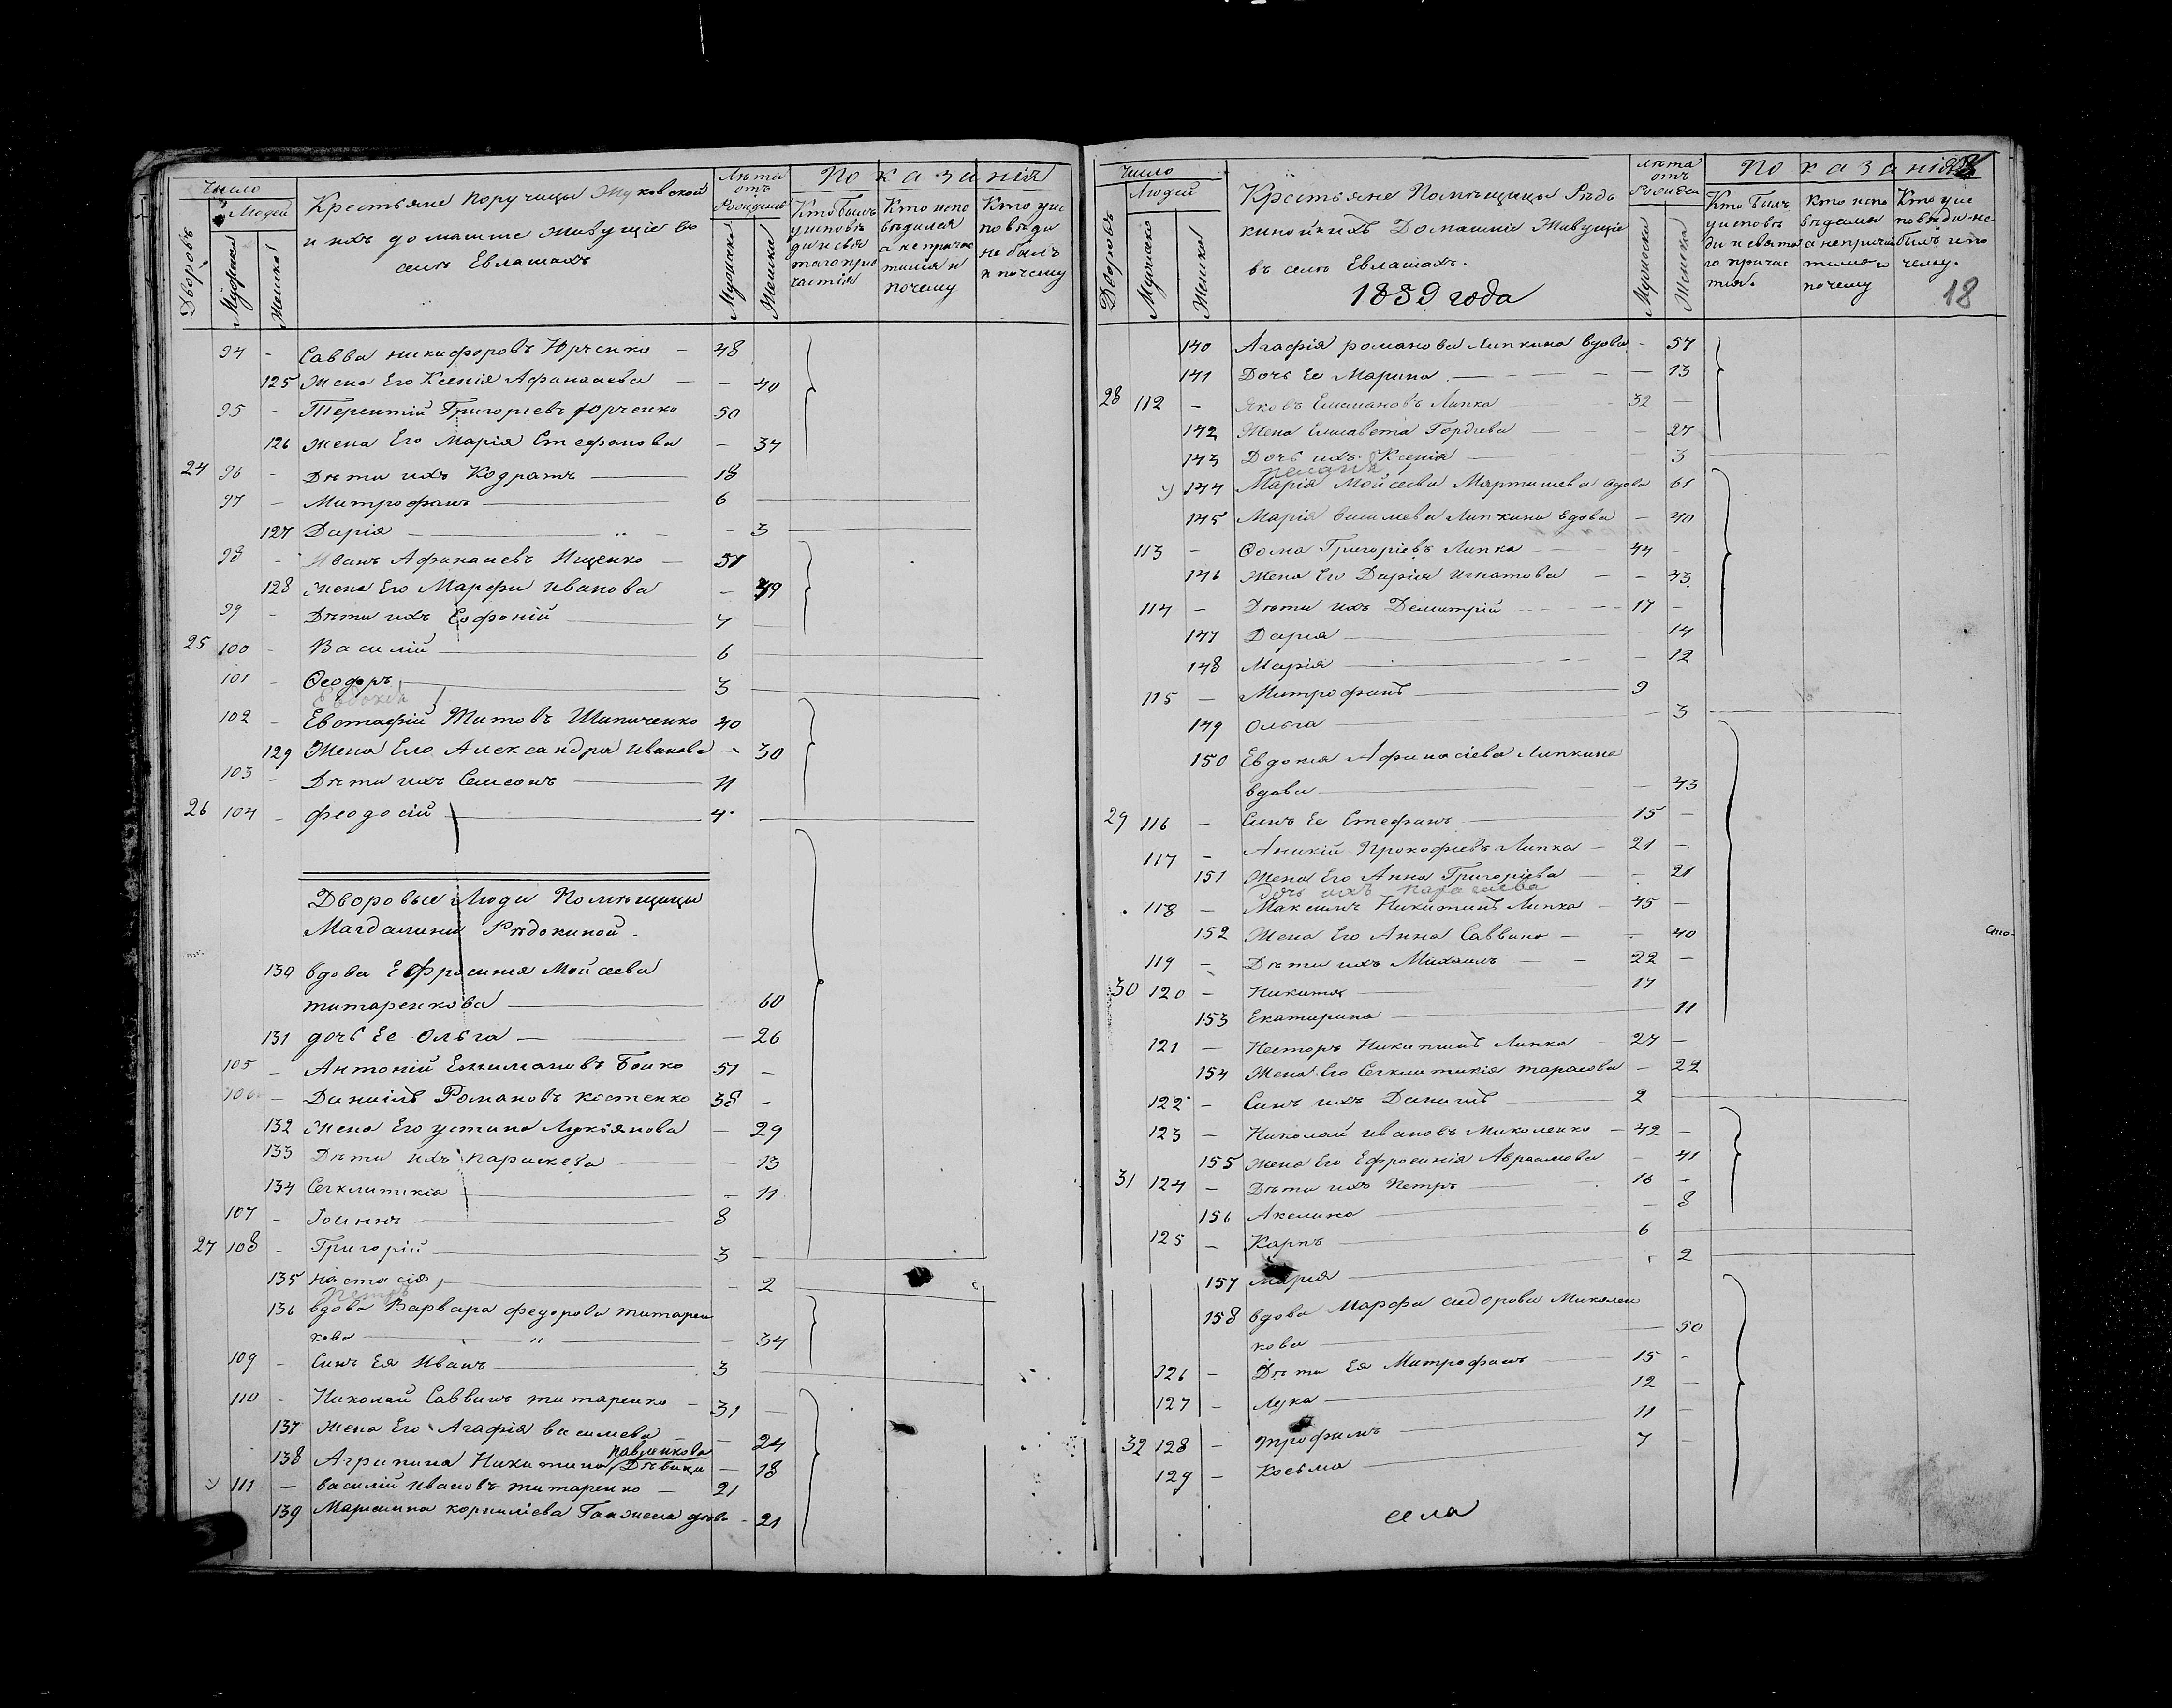 Число
Людей
Дворовъ
Мужеска
Женска
Крестьяне Поручицы Жуковской
и ихъ домашніе живущіе во
селѣ Евлашахъ
Лѣта
отъ
Рожденія
Мужеска
Женска
Показанія
Кто былъ
у исповѣ
ди и свя
таго при
частія
Кто испо
вѣдался
а не причас
тился и
почему
Кто у ис
повѣди
не былъ
и почему
94 - Савва Никифоровъ Юрченко - 48
125 Жена Его Ксенія Афанасиева - - 40
95 - Терентій Григоріевъ Юрченко 50
126 Жена Его Марія Стефанова - 34
24 96 - Дѣти ихъ Кодратъ 18
97 - Митрофанъ 6
127 Дарія - 3
98 - Иванъ Афанасиевъ Ищенко - 51
128 Жена Его Марфа Иванова - 49
99 - Дѣти ихъ Софоній 7
25 100 - Василій 6
101 - Ѳеодоръ 3
Евдокія
102 - Евстафій Титовъ Шапиченко 40
129 Жена Его Александра Иванова - 30
103 - Дѣти ихъ Самсонъ 11
26 104 - Феодосій 4
Дворовые Люди Помѣщицы
Магдалины Рѣдокиной.
130 вдова Ефросинія Мойсеева
титаренкова 60
131 дочь Ее Ольга - 26
105 - Антоній Еммануовъ Бойко 51 -
106 - Даніилъ Романовъ Костенко 38 -
132 Жена Его Устина Лукіянова - 29
133 Дѣти ихъ Параскева - 13
134 Сегклитикія - 11
107 - Іоаннъ 8
27 108 - Григорій 3
135 Настасія - 2
Петръ
136 вдова Варвара Федорова титарен
кова - 34
109 - Сынъ Ея Иванъ 3
110 - Николай Саввинъ титаренко - 31 -
137 Жена Его Агафія Василиева - 24
павленкова
138 Агрипина Никитина Дѣвица - 18
111 - Василій Ивановъ титаренко - 21
139 корнилієва - 21
Число
Людей
Дворовъ
Мужеска
Женска
Крестьяне Помѣщицы Рѣдо
киной и ихъ Домашніе Живущіе
въ селѣ Евлашахъ.
1839 года
Лѣта
отъ
Рожден
Мужеска
Женска
Показанія
Кто былъ
у исповѣ
ди и свята
го причас
тия.
Кто испо
вѣдался
а не причас
тился и
почему
Кто у ис
повѣди не
былъ и по
чему.
18
140 Агафія Романова Липкина вдова - 54
141 Дочь Ее Марина - 13
28 112 - Яковъ Емануовъ Липка 32 -
142 Жена Елисавета Гордіева - 27
143 Дочь ихъ Ксенія 3
144 Марія Мойсеева Мартишева вдова 61
145 Марія Василиева Липкина вдова - 40
113 - Ѳома Григоріевъ Липка 44 -
146 Жена Его Дарія Игнатова - 43
114 - Дѣти ихъ Демитрій 17 -
147 Дарія 14
148 Марія - 12
115 - Митрофанъ 9
149 Ольга - 3
150 Евдокія Афанасіева Липкина
вдова - 43
29 116 - Сынъ Ее Стефанъ 15 -
117 - Аникій Прокофіевъ Липка - 21 -
151 Жена Его Анна Григоріева - 21
дочь ихъ Параскева
118 - Максимъ Никитинъ Липка - 45 -
152 Жена Его Анна Саввина - 40
119 - Дѣти ихъ Михаилъ - 22 -
30 120 - Никита 17
153 Екатерина 11
121 - Несторъ Никитинъ Липка 27 -
154 Жена Его Сегклитикія Тарасова - 22
122 - Сынъ ихъ Даніилъ 2
123 - Николай Ивановъ Миколенко - 42 -
155 Жена Его Ефросинія Авраамова - 41
31 124 - Дѣти ихъ Петръ 16 -
156 Акелина - 8
125 - Карпъ 6
157 Марія 2
158 вдова Марфа Сидорова Миколен
кова 50
126 - Дѣти Ея Митрофанъ 15 -
127 - Лука 12 -
32 128 - Трофимъ 11 -
129 - Козьма 7 -
села